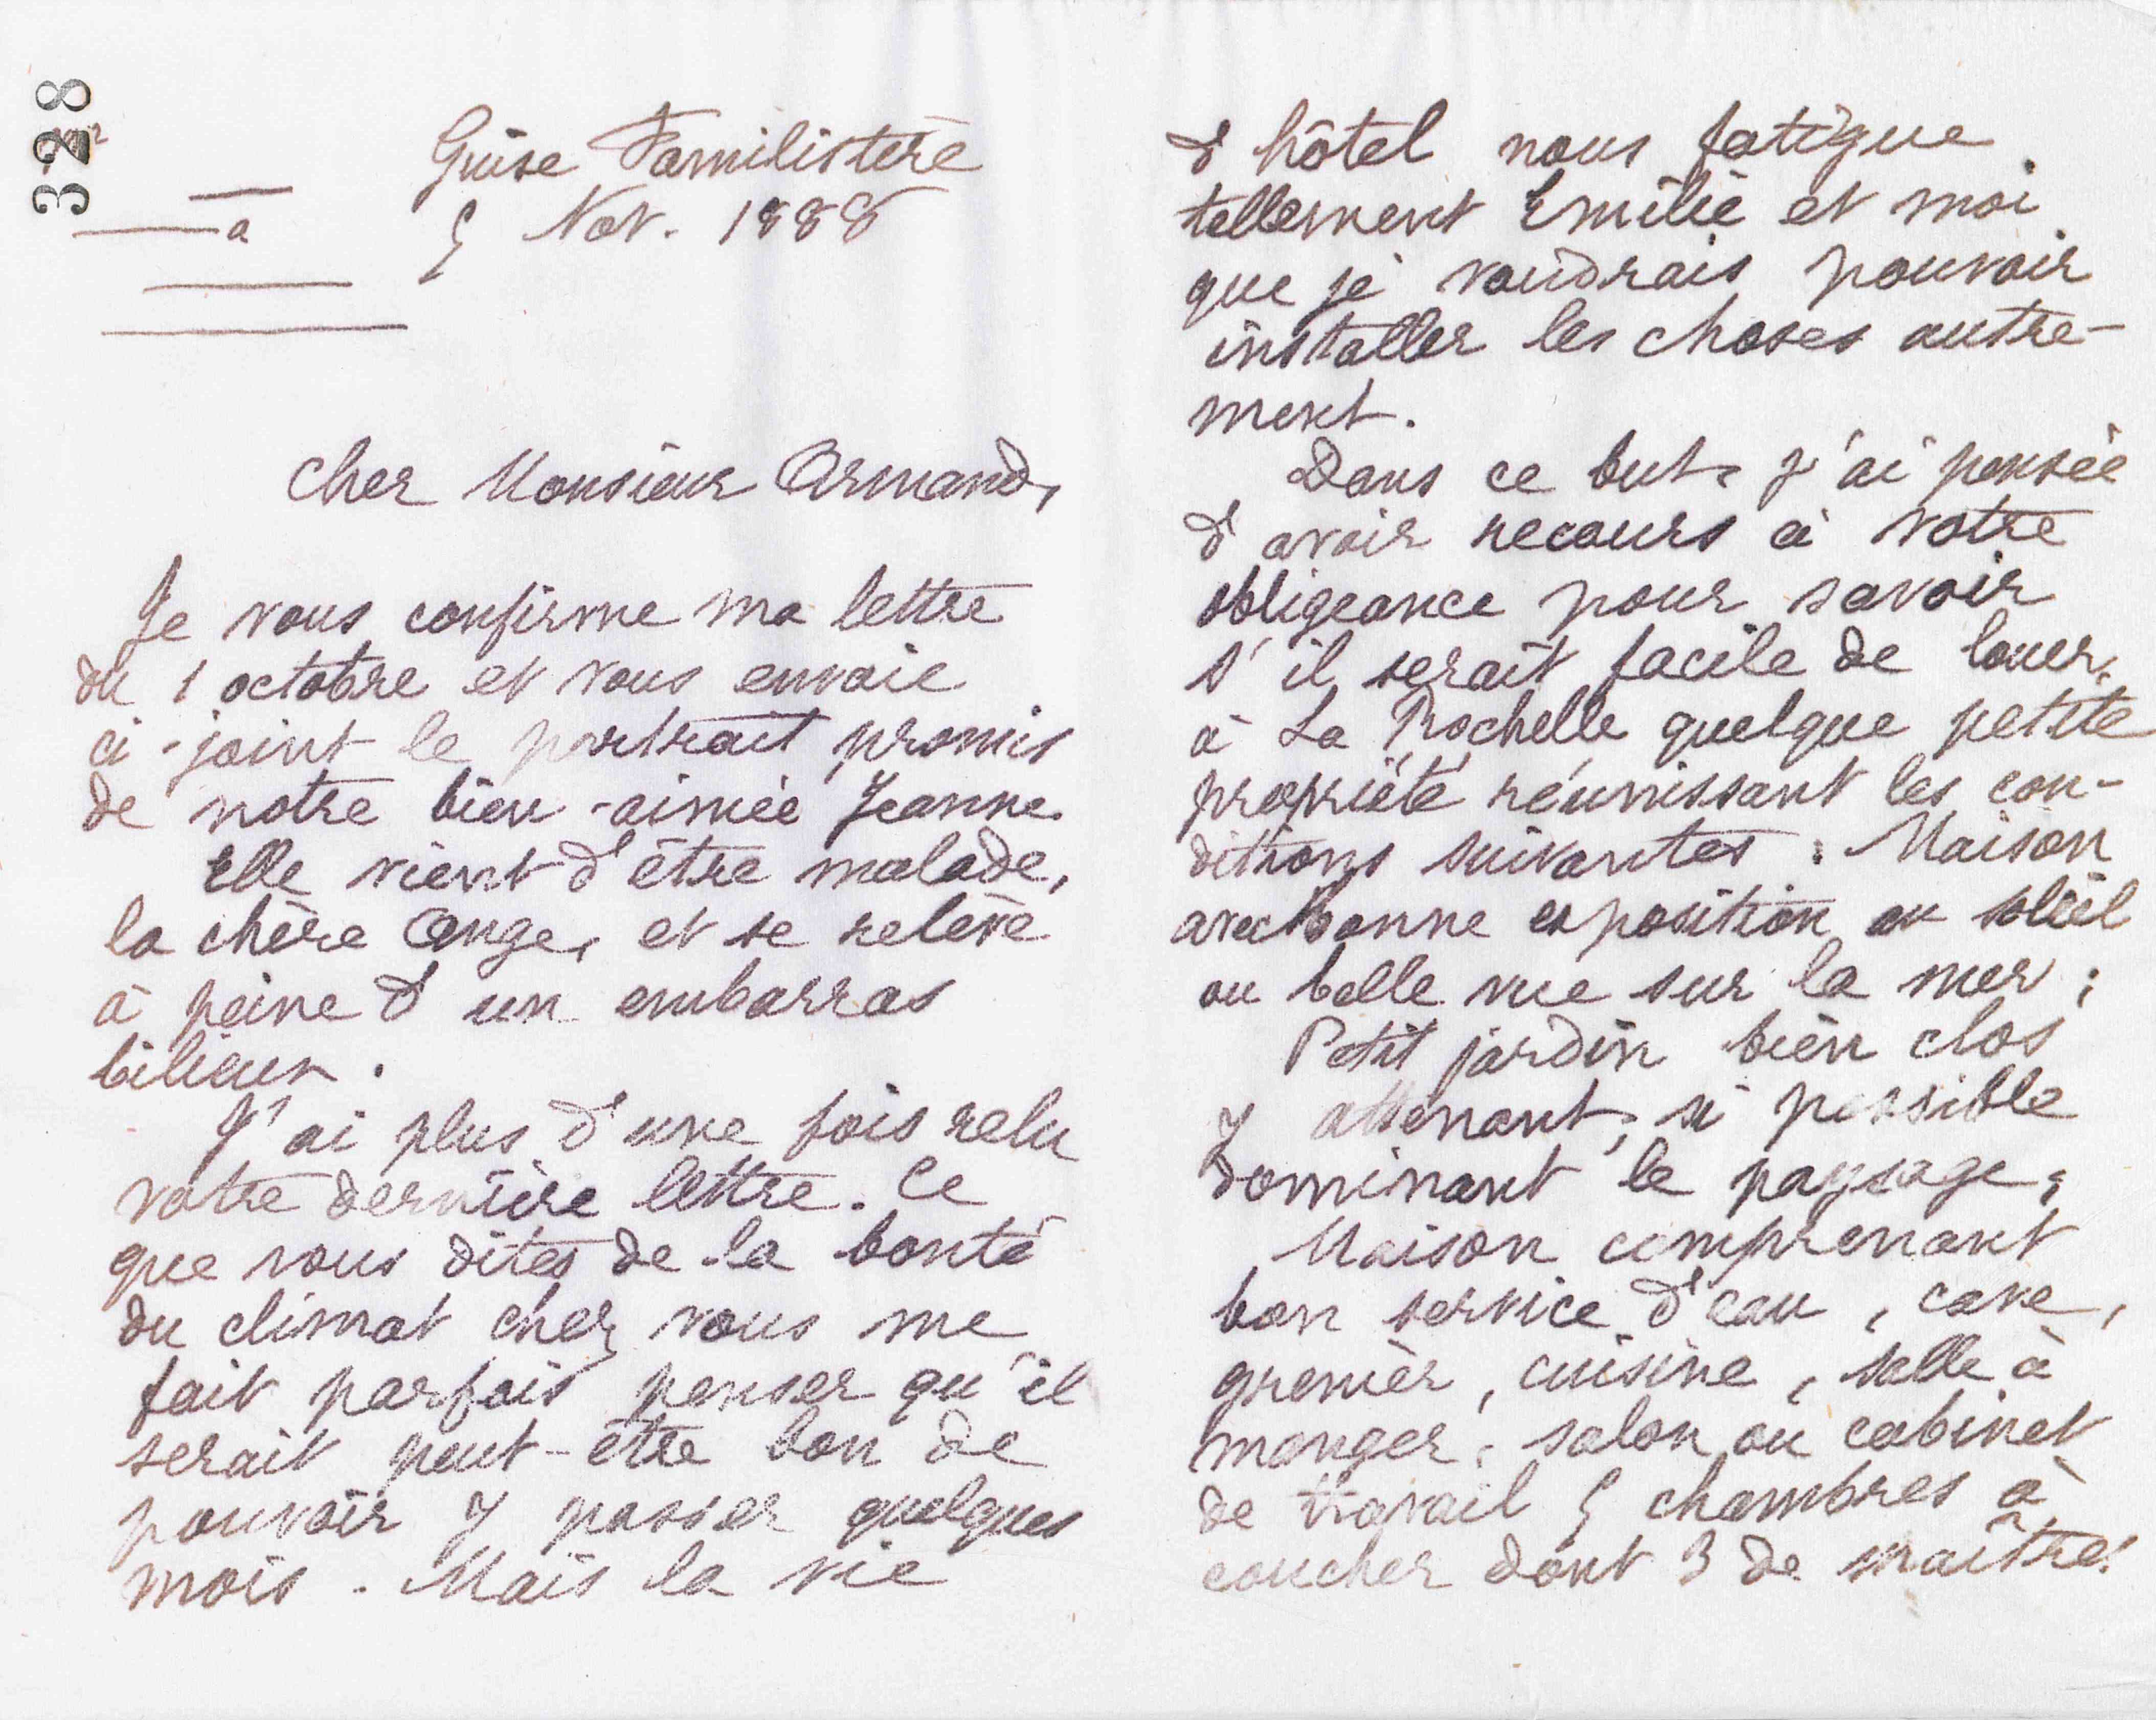 328
Guise Familistère
a
5 Nov. 1888
Cher Monsieur Armand,
Je vous confirme ma lettre
du 1 octobre et vous envoie
ci-joint le portrait promis
de notre bien-aimée Jeanne.
Elle vient d'être malade,
la chère Ange, et se relève
à peine d'un embarras
bilieux.
J'ai plus d'une fois relu
votre dernière lettre. Ce
que vous dites de la bonté
du climat chez vous me
fait parfois penser qu'il
serait peut-être bon de
pouvoir y passer quelques
mois. Mais la vie
d'hôtel nous fatigue
tellement Emilie et moi
que je voudrais pouvoir
installer les choses autre-
ment.
Dans ce but, j'ai pensée
d'avoir recours à votre
obligeance pour savoir
s'il serait facile de louer,
à La Rochelle quelque petite
propriété réunissant les con-
ditions suivantes : Maison
avec bonne exposition au soleil
ou belle vue sur la mer ;
Petit jardin bien clos
y attenant, si possible
dominant le paysage ;
Maison comprenant
bon service d'eau, cave,
grenier, cuisine, salle à
manger, salon ou cabinet
de travail 5 chambres à
coucher dont 3 de maître.